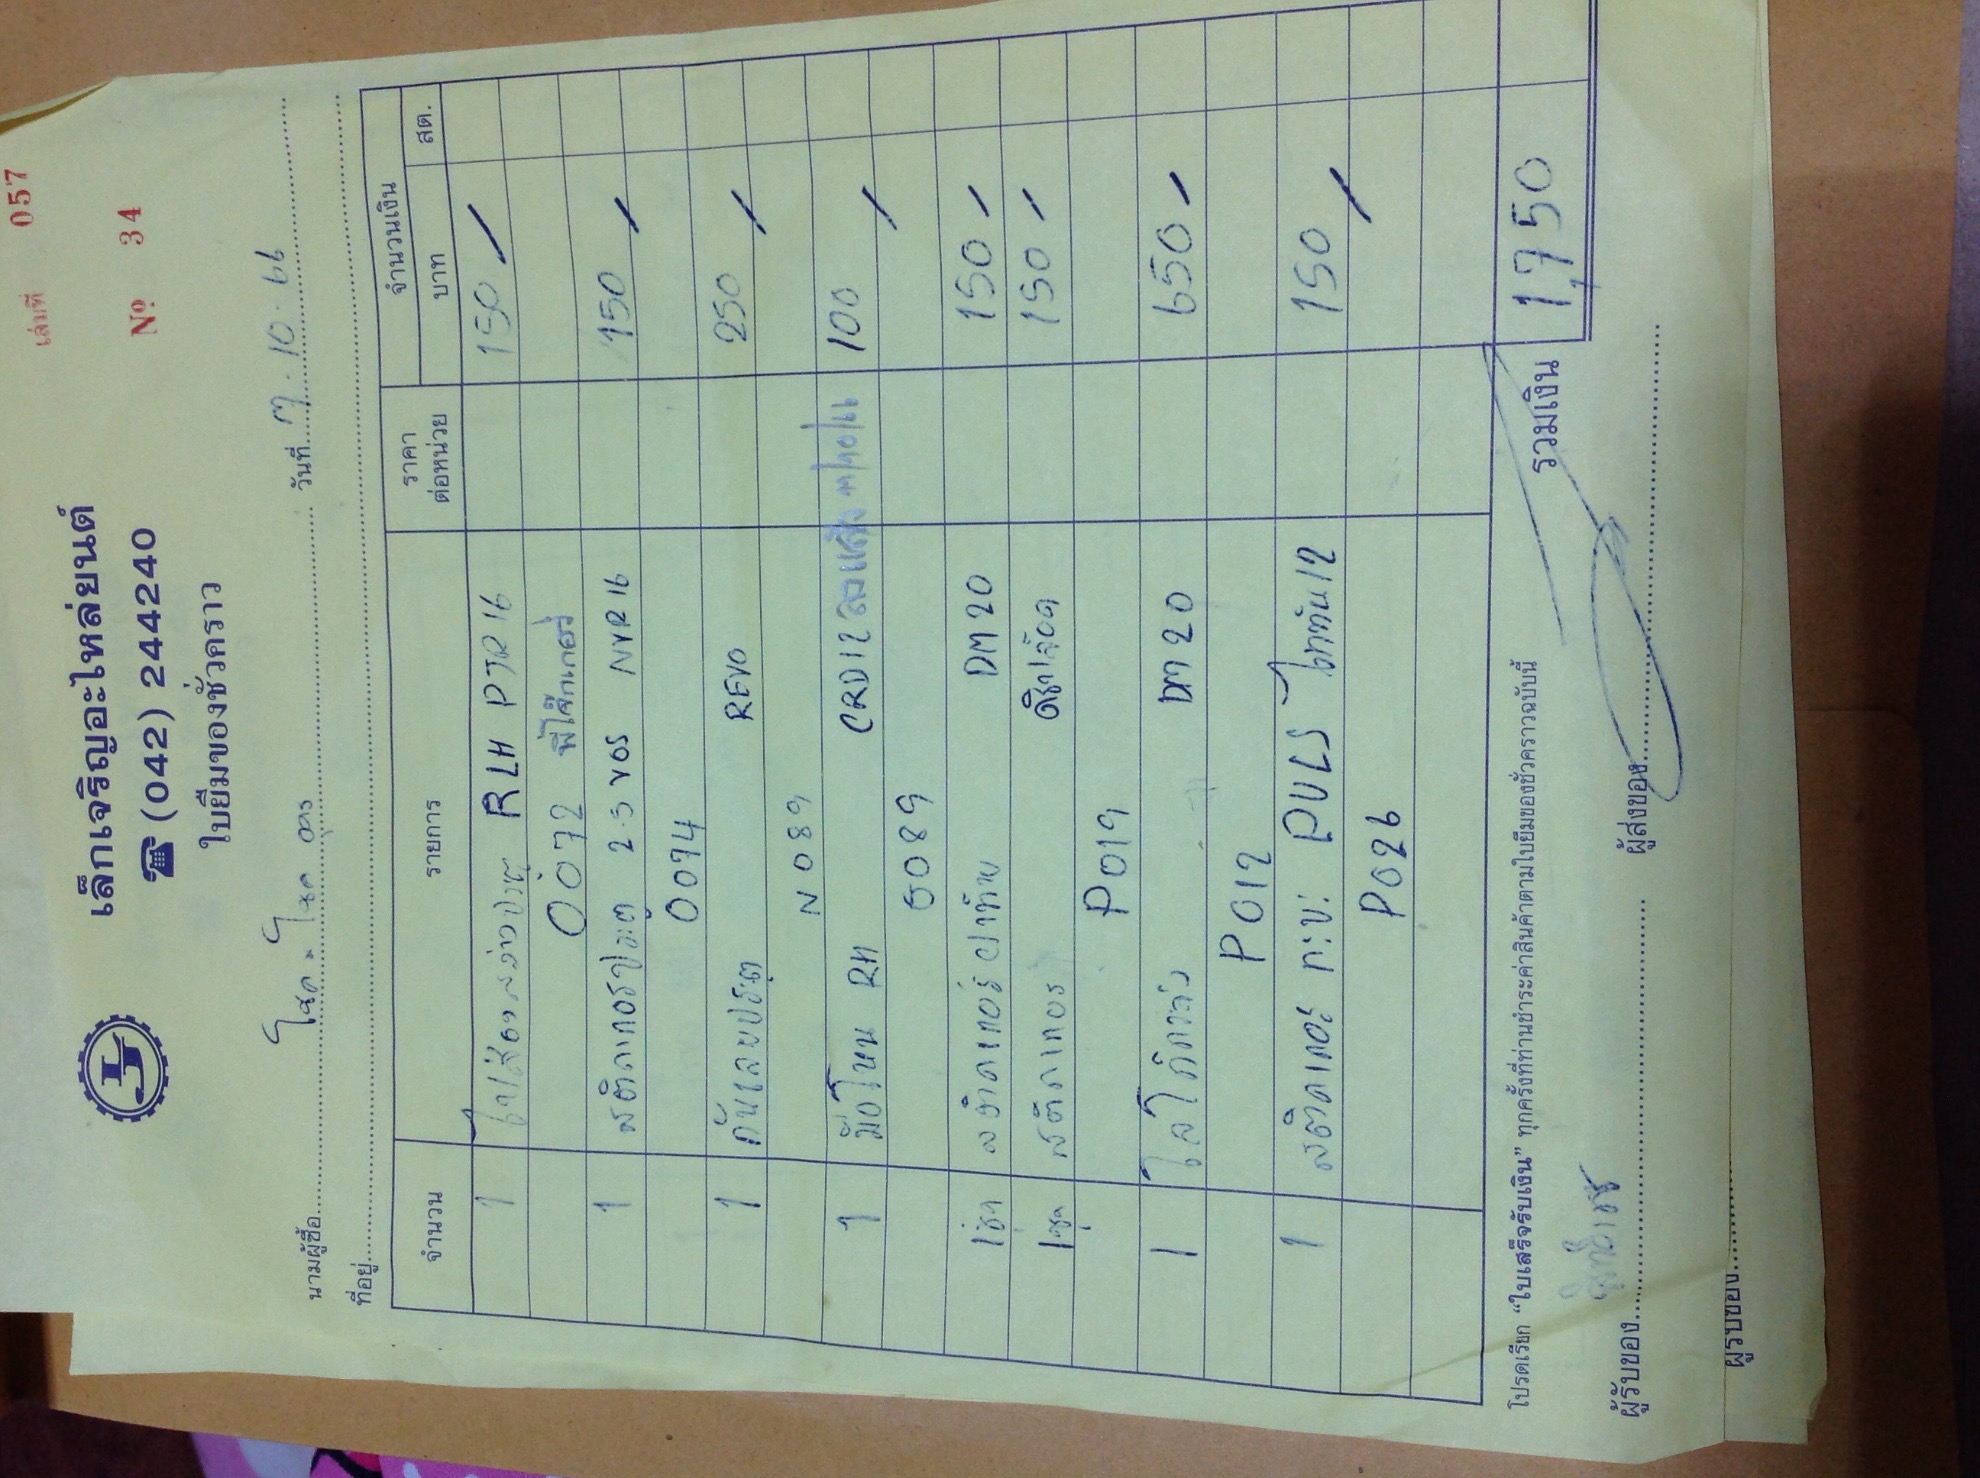 เล่มที่ 057
เล็กเจริญอะไหล่ยนต์
☎ (042) 244240
Nº 34
ใบยืมของชั่วคราว
นามผู้ซื้อ โชค ๒ โชค อุดร วันที่ 7.10.66
ที่อยู่
จำนวน รายการ ราคาต่อหน่วย จำนวนเงิน
บาท สต.
1 RLH PJR 16 150
0072
1 สติกเกอร์ประตู 2.5 VGS NVR 16 150
0074
1 กันเลยประตู REVO 250
N 089
1 มือโหน RH CRD12 100
0089
1 ชุด สติกเกอร์ฝาท้าย DM20 150
1 ชุด สติกเกอร์ 150
P019
1 DM 20 650
P012
1 สติกเกอร์ กะบะ PULS ไททัน 12 150
P026
รวมเงิน 1,750
โปรดเรียก "ใบเสร็จรับเงิน" ทุกครั้งที่ท่านชำระค่าสินค้าตามใบยืมของชั่วคราวฉบับนี้
ผู้รับของ ผู้ส่งของ
ผู้รับของ